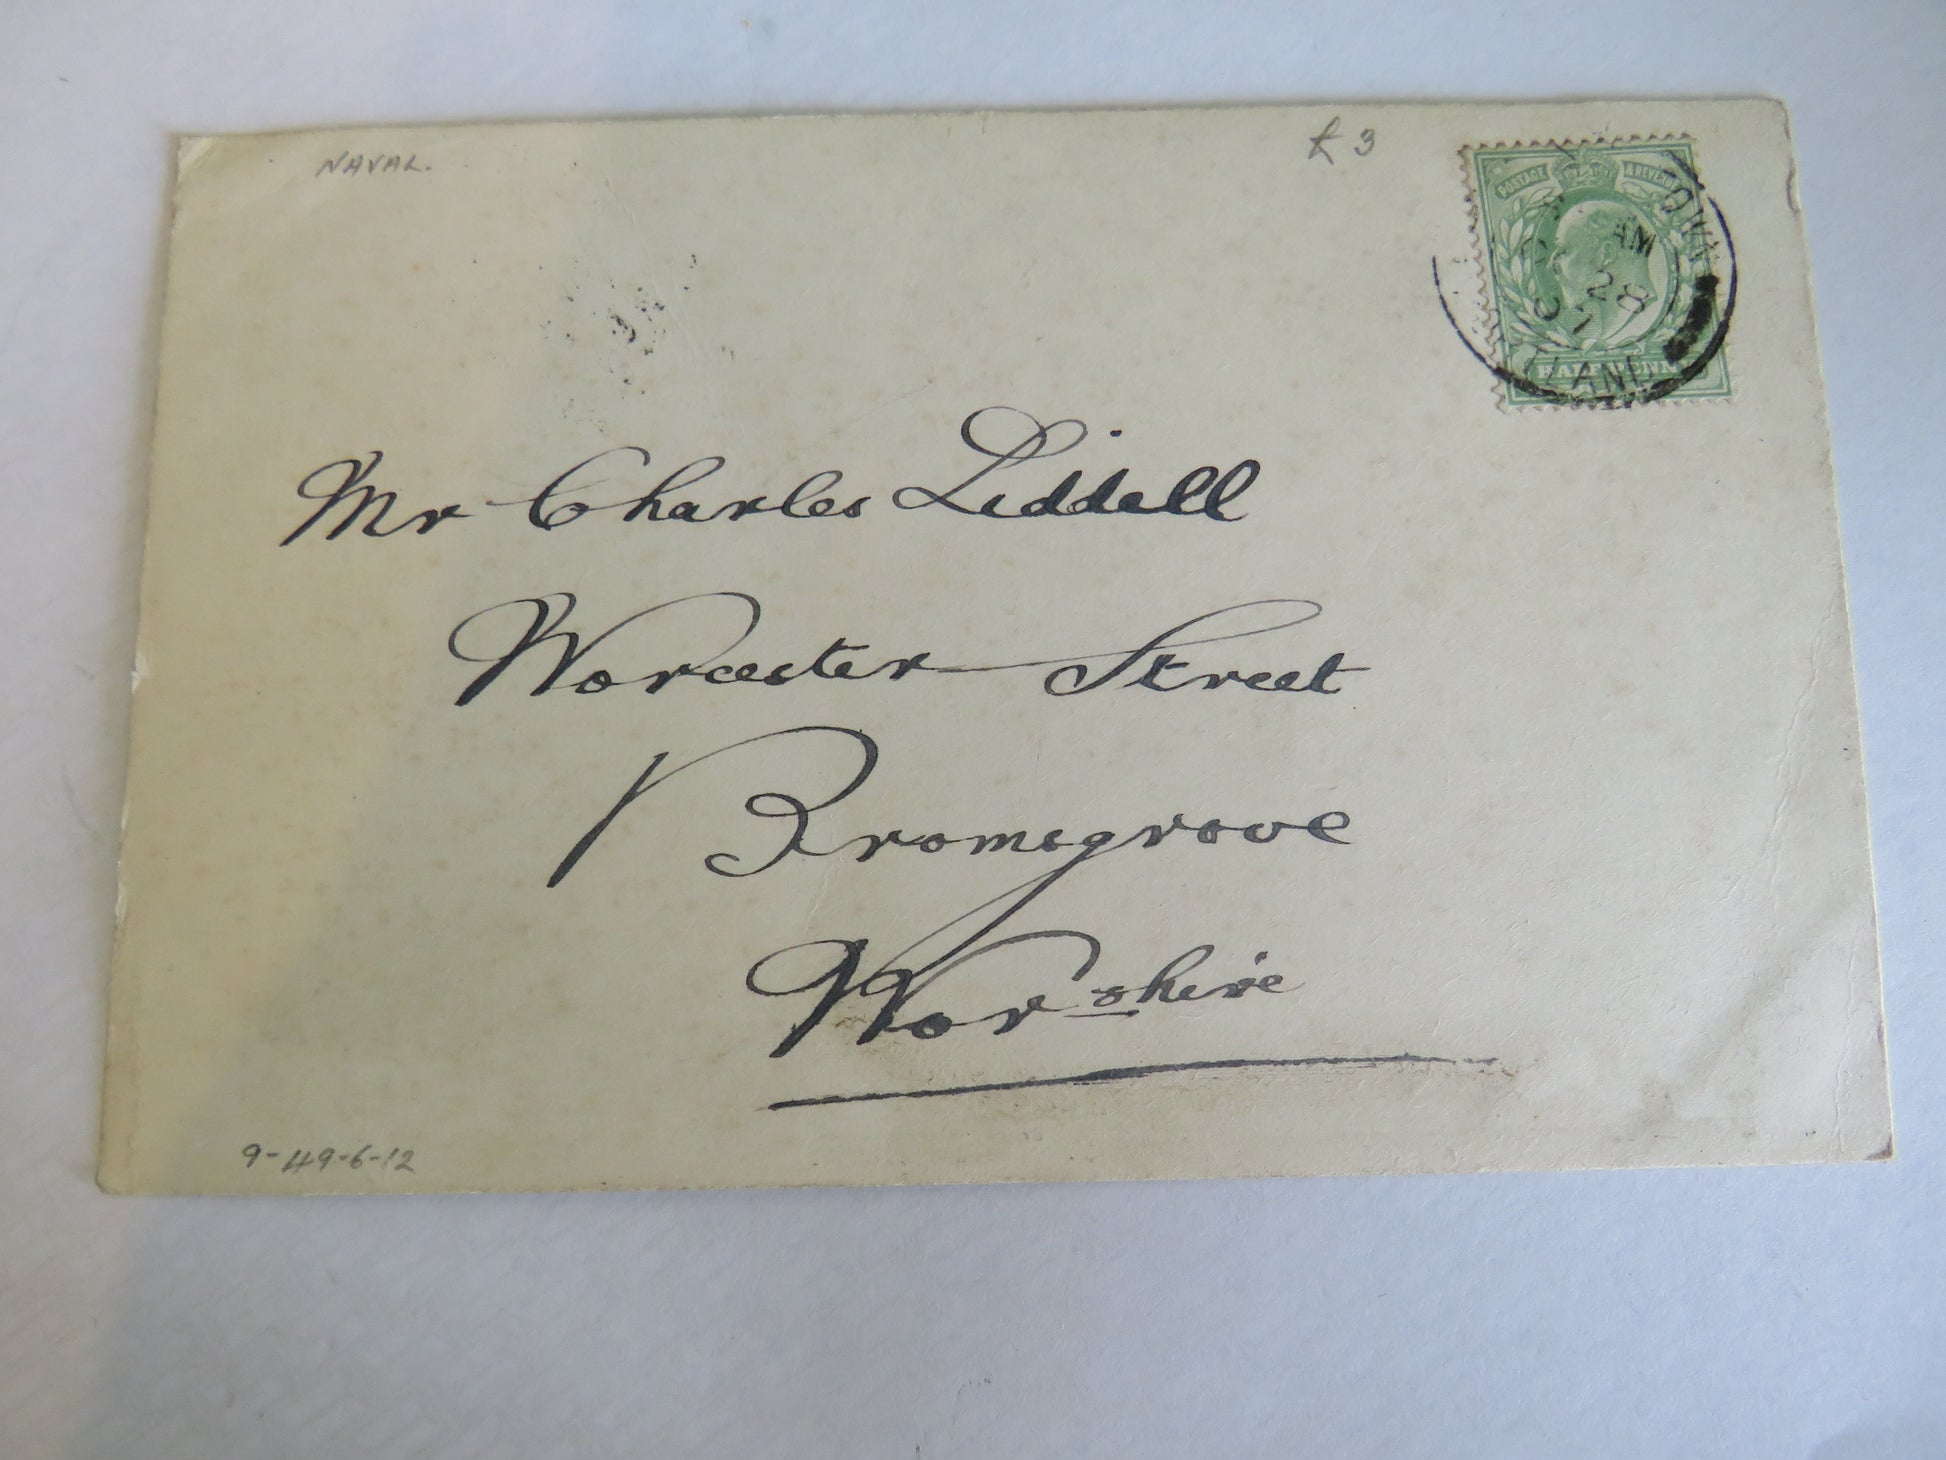 NAVAL.
£3
POSTAGE & REVENUE
AM
28
HALFPENNY
Mr Charles Liddell
Worcester Street
Bromsgrove
Wor-shire
9-49-6-12